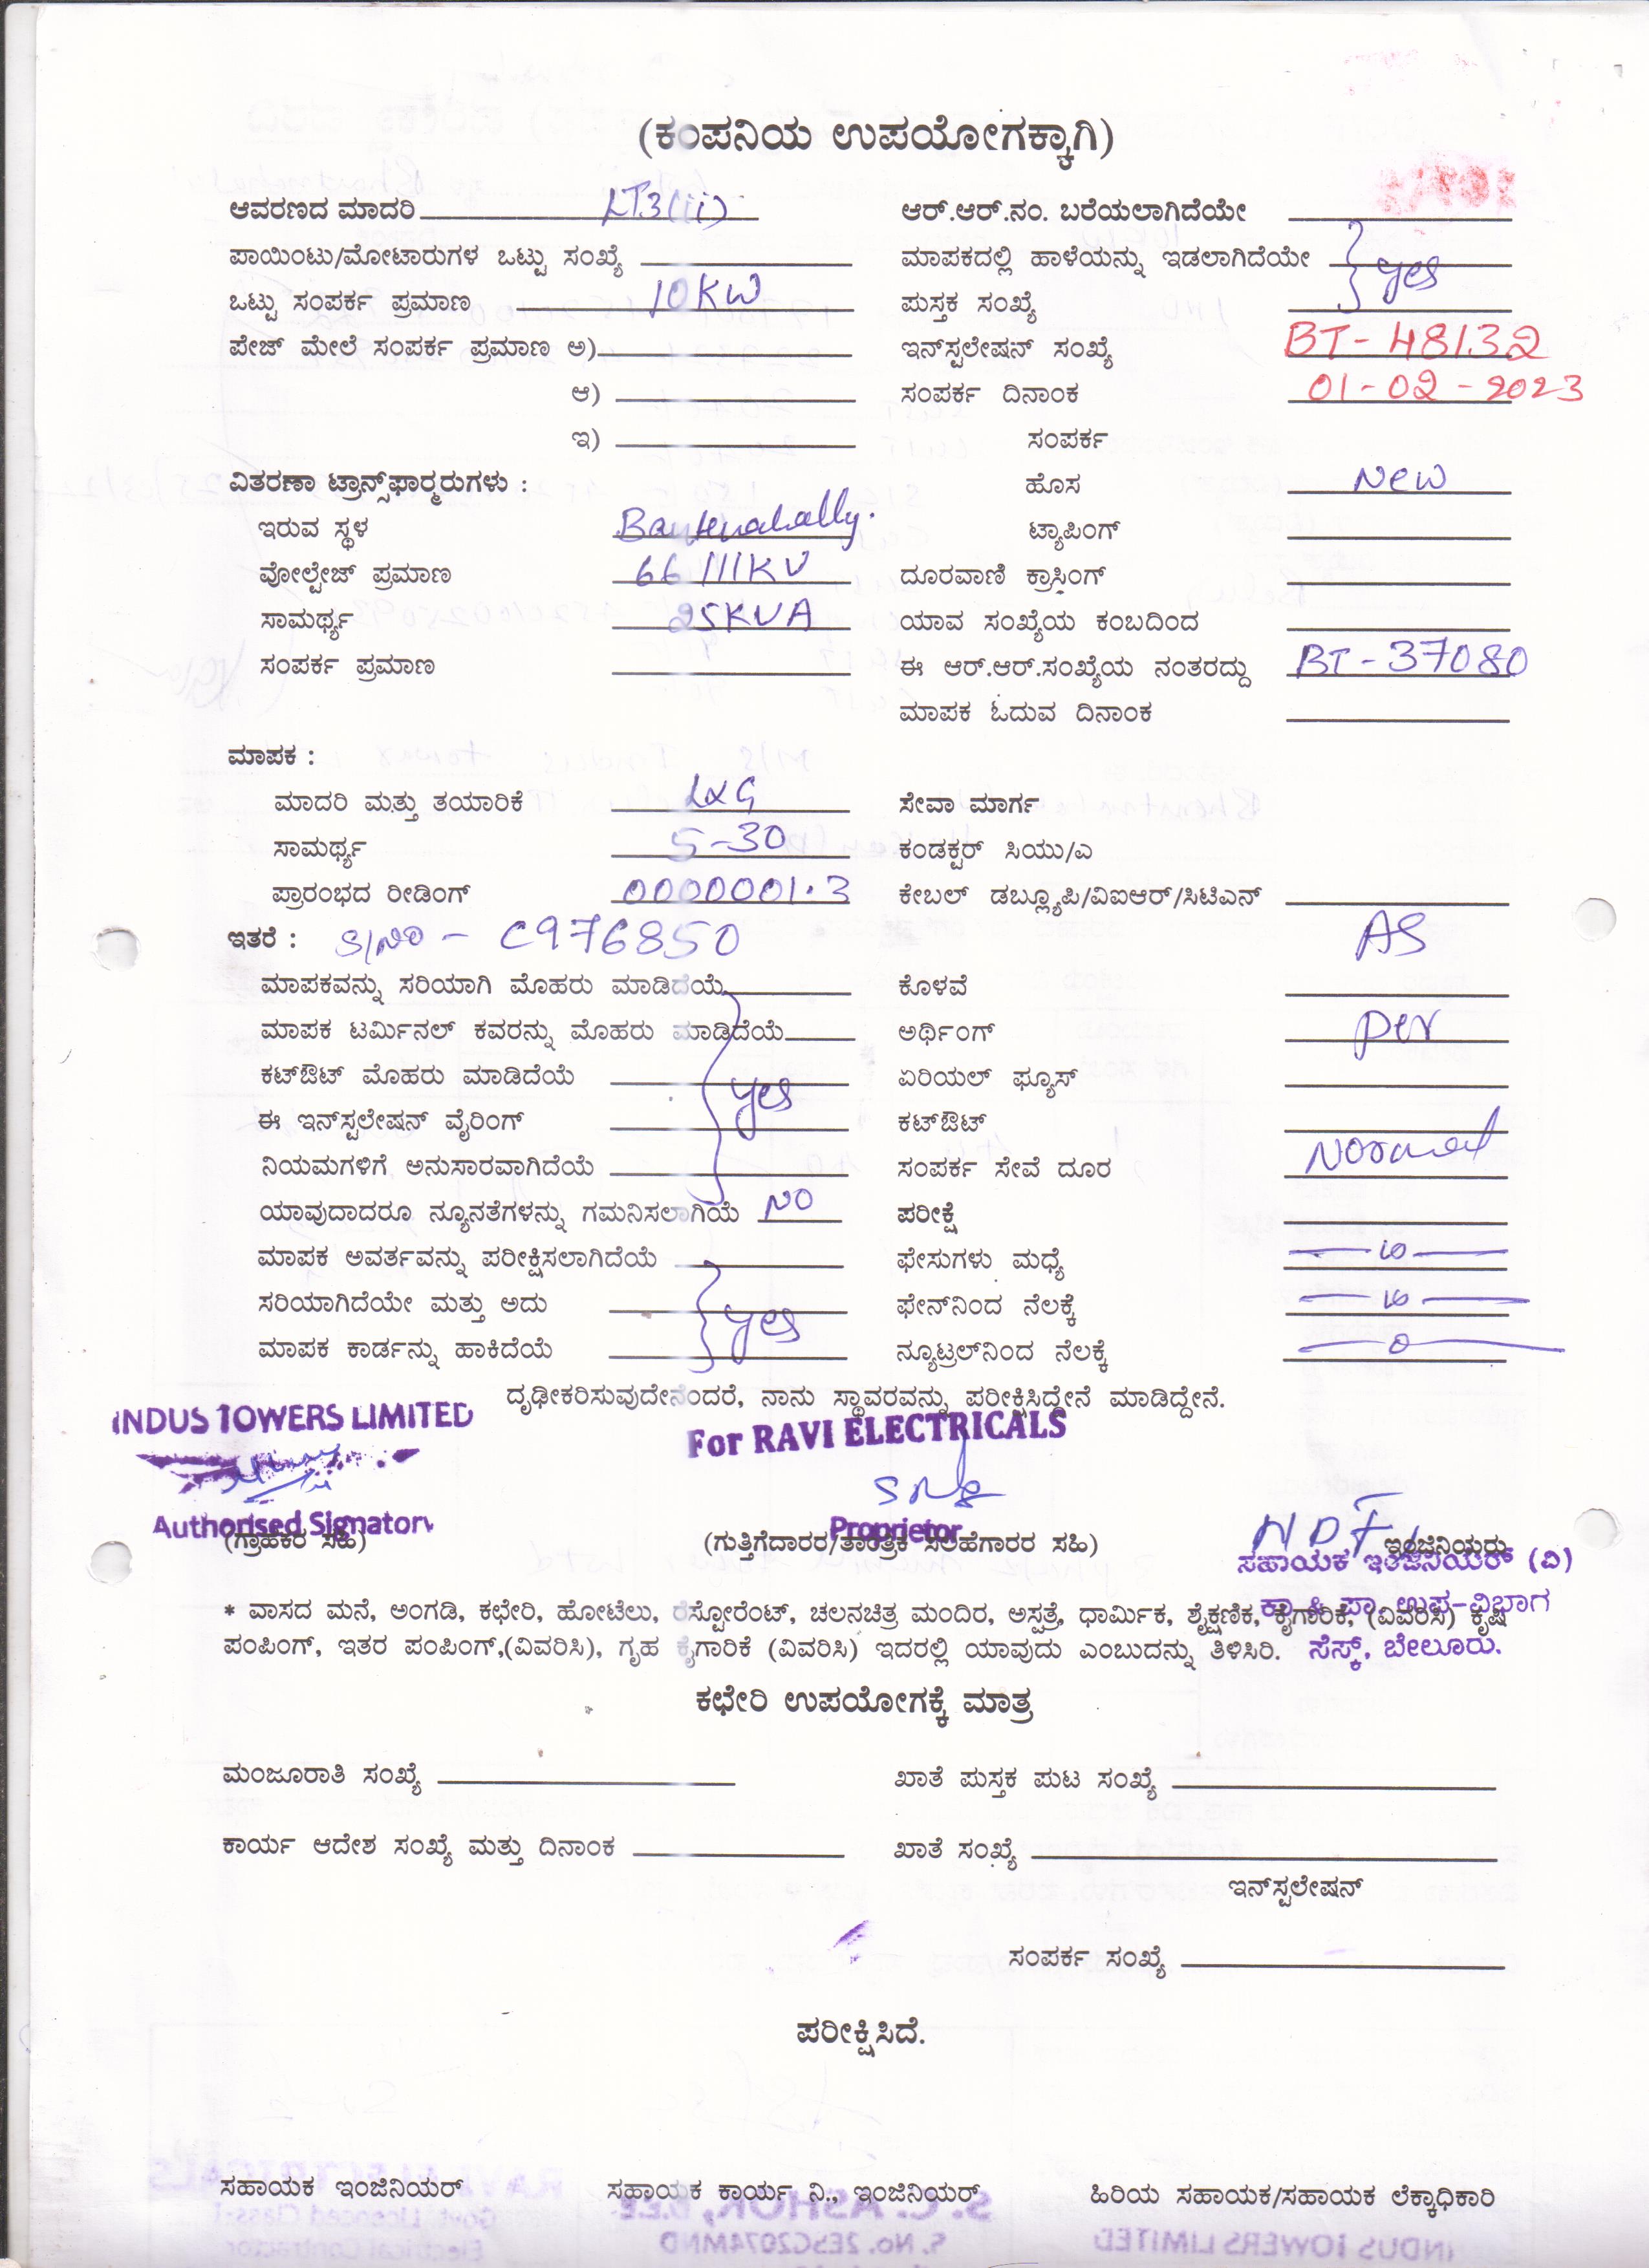 (ಕಂಪನಿಯ ಉಪಯೋಗಕ್ಕಾಗಿ)
ಆವರಣದ ಮಾದರಿ LT3(ii) ಆರ್.ಆರ್.ನಂ. ಬರೆಯಲಾಗಿದೆಯೇ
ಪಾಯಿಂಟು/ಮೋಟಾರುಗಳ ಒಟ್ಟು ಸಂಖ್ಯೆ ಮಾಪಕದಲ್ಲಿ ಹಾಳೆಯನ್ನು ಇಡಲಾಗಿದೆಯೇ yes
ಒಟ್ಟು ಸಂಪರ್ಕ ಪ್ರಮಾಣ 10KW ಪುಸ್ತಕ ಸಂಖ್ಯೆ
ಪೇಜ್ ಮೇಲೆ ಸಂಪರ್ಕ ಪ್ರಮಾಣ ಅ) ಇನ್‌ಸ್ಟಲೇಷನ್ ಸಂಖ್ಯೆ BT-48132
ಆ) ಸಂಪರ್ಕ ದಿನಾಂಕ 01-02-2023
ಇ) ಸಂಪರ್ಕ
ವಿತರಣಾ ಟ್ರಾನ್ಸ್‌ಫಾರ್‍ಮರುಗಳು : ಹೊಸ New
ಇರುವ ಸ್ಥಳ ಟ್ಯಾಪಿಂಗ್
ವೋಲ್ಟೇಜ್ ಪ್ರಮಾಣ 66/11KV ದೂರವಾಣಿ ಕ್ರಾಸಿಂಗ್
ಸಾಮರ್ಥ್ಯ 25KVA ಯಾವ ಸಂಖ್ಯೆಯ ಕಂಬದಿಂದ
ಸಂಪರ್ಕ ಪ್ರಮಾಣ ಈ ಆರ್.ಆರ್.ಸಂಖ್ಯೆಯ ನಂತರದ್ದು BT-37080
ಮಾಪಕ ಓದುವ ದಿನಾಂಕ
ಮಾಪಕ :
ಮಾದರಿ ಮತ್ತು ತಯಾರಿಕೆ L&G ಸೇವಾ ಮಾರ್ಗ
ಸಾಮರ್ಥ್ಯ 5-30 ಕಂಡಕ್ಟರ್ ಸಿಯು/ಎ
ಪ್ರಾರಂಭದ ರೀಡಿಂಗ್ 0000001.3 ಕೇಬಲ್ ಡಬ್ಲ್ಯೂಪಿ/ವಿಐಆರ್/ಸಿಟಿಎನ್
ಇತರೆ : S/NO - C976850 AS
ಮಾಪಕವನ್ನು ಸರಿಯಾಗಿ ಮೊಹರು ಮಾಡಿದೆಯೆ ಕೊಳವೆ
ಮಾಪಕ ಟರ್ಮಿನಲ್ ಕವರನ್ನು ಮೊಹರು ಮಾಡಿದೆಯೆ ಅರ್ಥಿಂಗ್ per
ಕಟ್‌ಔಟ್ ಮೊಹರು ಮಾಡಿದೆಯೆ yes ಏರಿಯಲ್ ಫ್ಯೂಸ್
ಈ ಇನ್‌ಸ್ಟಲೇಷನ್ ವೈರಿಂಗ್ ಕಟ್‌ಔಟ್
ನಿಯಮಗಳಿಗೆ ಅನುಸಾರವಾಗಿದೆಯೆ ಸಂಪರ್ಕ ಸೇವೆ ದೂರ
ಯಾವುದಾದರೂ ನ್ಯೂನತೆಗಳನ್ನು ಗಮನಿಸಲಾಗಿಯೆ NO ಪರೀಕ್ಷೆ
ಮಾಪಕ ಅವರ್ತವನ್ನು ಪರೀಕ್ಷಿಸಲಾಗಿದೆಯೆ ಫೇಸುಗಳು ಮಧ್ಯೆ
ಸರಿಯಾಗಿದೆಯೇ ಮತ್ತು ಅದು yes ಫೇನ್‌ನಿಂದ ನೆಲಕ್ಕೆ
ಮಾಪಕ ಕಾರ್ಡನ್ನು ಹಾಕಿದೆಯೆ ನ್ಯೂಟ್ರಲ್‌ನಿಂದ ನೆಲಕ್ಕೆ 0
ದೃಢೀಕರಿಸುವುದೇನೆಂದರೆ, ನಾನು ಸ್ಥಾವರವನ್ನು ಪರೀಕ್ಷಿಸಿದ್ದೇನೆ ಮಾಡಿದ್ದೇನೆ.
INDUS TOWERS LIMITED For RAVI ELECTRICALS
Authorised Signatory Proprietor
(ಗ್ರಾಹಕರ ಸಹಿ) (ಗುತ್ತಿಗೆದಾರರ/ತಾಂತ್ರಿಕ ಸಲಹೆಗಾರರ ಸಹಿ) ಇಂಜಿನಿಯರು
ಸಹಾಯಕ ಇಂಜಿನಿಯರ್ (ವಿ)
ಕಾ & ಪಾ ಉಪ-ವಿಭಾಗ
* ವಾಸದ ಮನೆ, ಅಂಗಡಿ, ಕಛೇರಿ, ಹೋಟೆಲು, ರೆಸ್ಟೋರೆಂಟ್, ಚಲನಚಿತ್ರ ಮಂದಿರ, ಅಸ್ಪತ್ರೆ, ಧಾರ್ಮಿಕ, ಶೈಕ್ಷಣಿಕ, ಕೈಗಾರಿಕೆ, (ವಿವರಿಸಿ) ಕೃಷಿ
ಪಂಪಿಂಗ್, ಇತರ ಪಂಪಿಂಗ್,(ವಿವರಿಸಿ), ಗೃಹ ಕೈಗಾರಿಕೆ (ವಿವರಿಸಿ) ಇದರಲ್ಲಿ ಯಾವುದು ಎಂಬುದನ್ನು ತಿಳಿಸಿರಿ. ಸೆಸ್ಕ್, ಬೇಲೂರು.
ಕಛೇರಿ ಉಪಯೋಗಕ್ಕೆ ಮಾತ್ರ
ಮಂಜೂರಾತಿ ಸಂಖ್ಯೆ ಖಾತೆ ಪುಸ್ತಕ ಪುಟ ಸಂಖ್ಯೆ
ಕಾರ್ಯ ಆದೇಶ ಸಂಖ್ಯೆ ಮತ್ತು ದಿನಾಂಕ ಖಾತೆ ಸಂಖ್ಯೆ
ಇನ್‌ಸ್ಟಲೇಷನ್
ಸಂಪರ್ಕ ಸಂಖ್ಯೆ
ಪರೀಕ್ಷಿಸಿದೆ.
ಸಹಾಯಕ ಇಂಜಿನಿಯರ್ ಸಹಾಯಕ ಕಾರ್ಯ ನಿ., ಇಂಜಿನಿಯರ್ ಹಿರಿಯ ಸಹಾಯಕ/ಸಹಾಯಕ ಲೆಕ್ಕಾಧಿಕಾರಿ